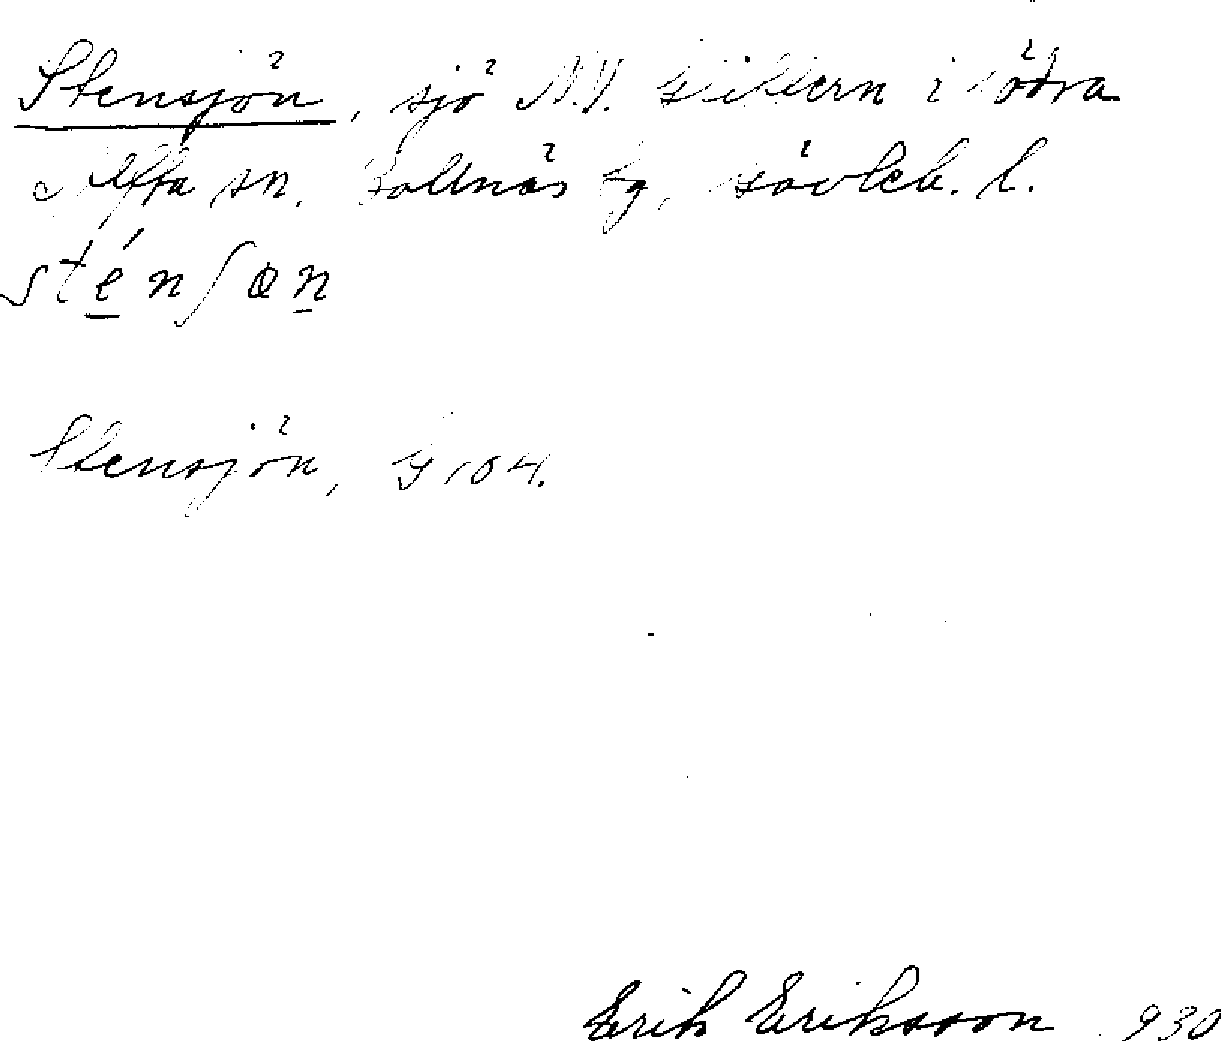 Stensjön, sjö N.V. Gillern i södra
Alfta sn. Bollnäs tg, Gävleb. l.
sténʃøn
Stensjön, G 104.
Erik Eriksson 1930